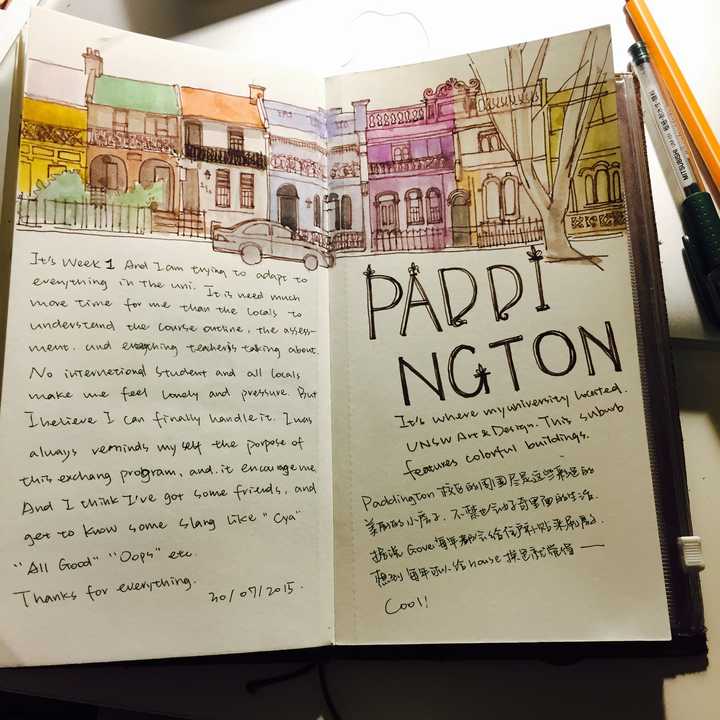 It's Week 1 And I am trying to adapt to
everything in the uni. It is need much
more time for me than the locals to
understand the course outline, the assess-
ment. and everything teacher's taking about.
No international student and all locals
make me feel lonely and pressure. But
I believe I can finally handle it. I was
always reminds my self the porpose of
this exchang program, and it encourage me
And I think I've got some friends, and
get to know some slang like "Cya"
"All Good" "Oops" etc.
Thanks for everything.
20/07/2015.
PADDI
NGTON
It's where my university located.
UNSW Art & Design. This suburb
features colorful buildings.
Paddington 校区的周围尽是这些彩色的
美丽的小房子. 不禁也会好奇里面的生活.
据说 Gove 每年都会给住户补贴来刷房子.
想到每年可以给 house 换色就觉得 ——
Cool!
MITSUBISHI